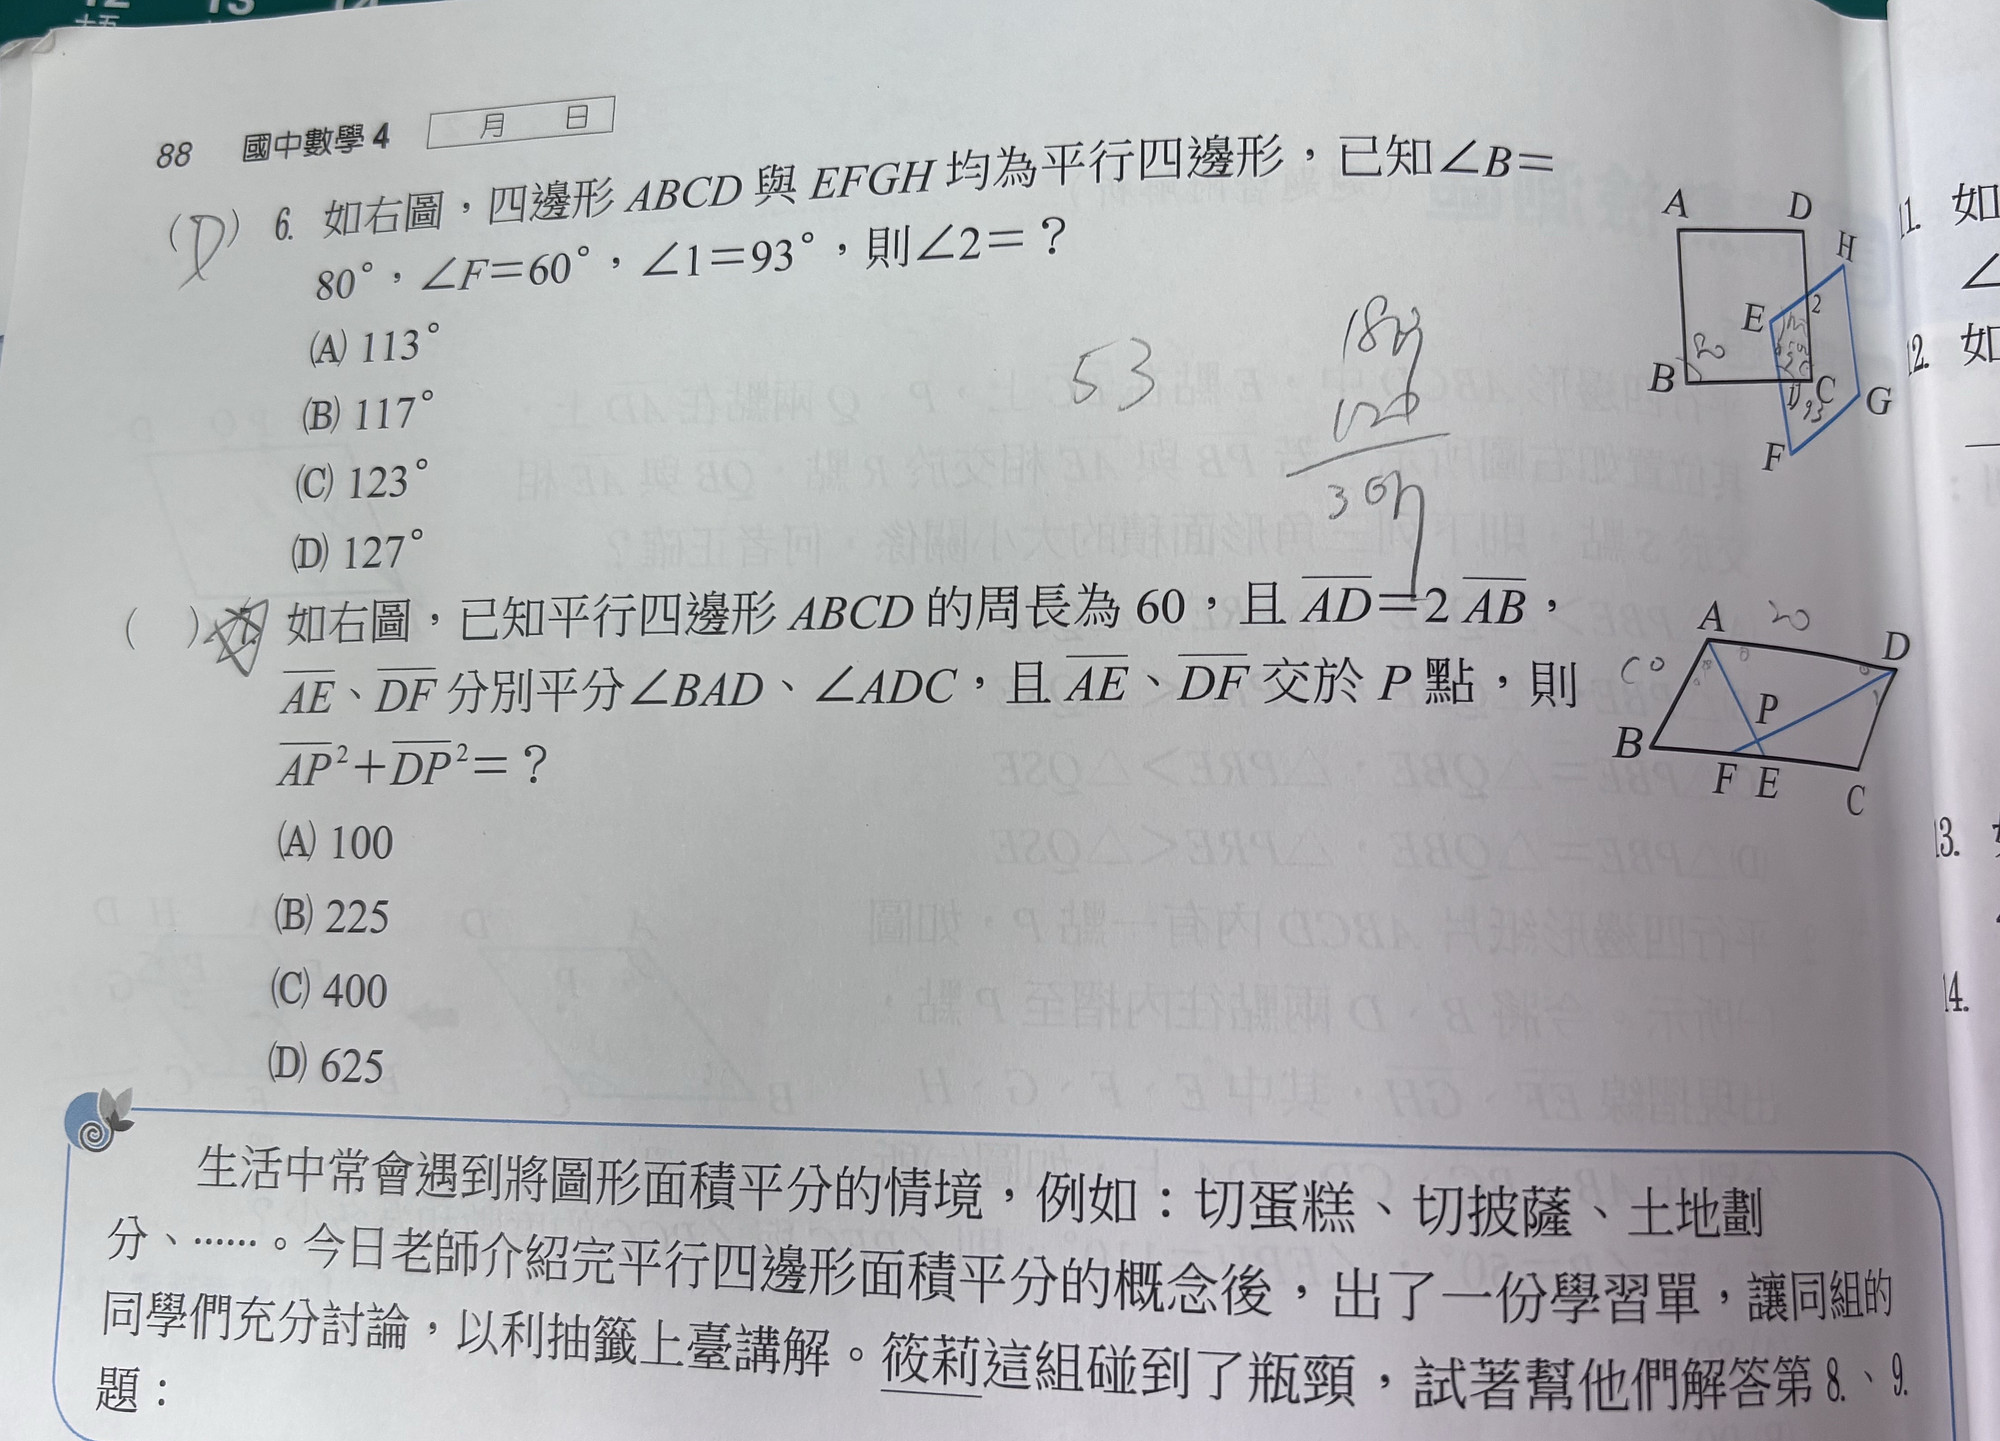 十五
88 國中數學 4 月 日
(D) 6. 如右圖，四邊形 ABCD 與 EFGH 均為平行四邊形，已知∠B＝
80°，∠F＝60°，∠1＝93°，則∠2＝？
(A) 113°
(B) 117°
(C) 123°
(D) 127°
53
A D H
E 2
B C G
F
( ) 7. 如右圖，已知平行四邊形 ABCD 的周長為 60，且 AD＝2 AB，
AE、DF 分別平分∠BAD、∠ADC，且 AE、DF 交於 P 點，則
AP²＋DP²＝？
(A) 100
(B) 225
(C) 400
(D) 625
A 20 D
P
B F E C
生活中常會遇到將圖形面積平分的情境，例如：切蛋糕、切披薩、土地劃
分、……。今日老師介紹完平行四邊形面積平分的概念後，出了一份學習單，讓同組的
同學們充分討論，以利抽籤上臺講解。筱莉這組碰到了瓶頸，試著幫他們解答第 8.、9.
題：
11. 如
∠
12. 如
13.
14.